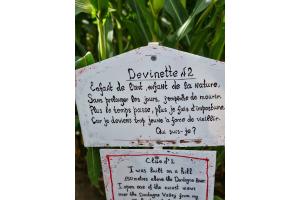 Devinette N2
Enfant de l'art, enfant de la Nature,
Sans prolonger les jours, j'empêche de mourir.
Plus le temps passe, plus je fais d'imposture
Car je deviens trop jeune à force de vieillir.
Qui suis-je ?
Clue n°2
I was built on a hill
150 metres above the Dordogne River
I open one of the nicest views
over the Dordogne Valley from my